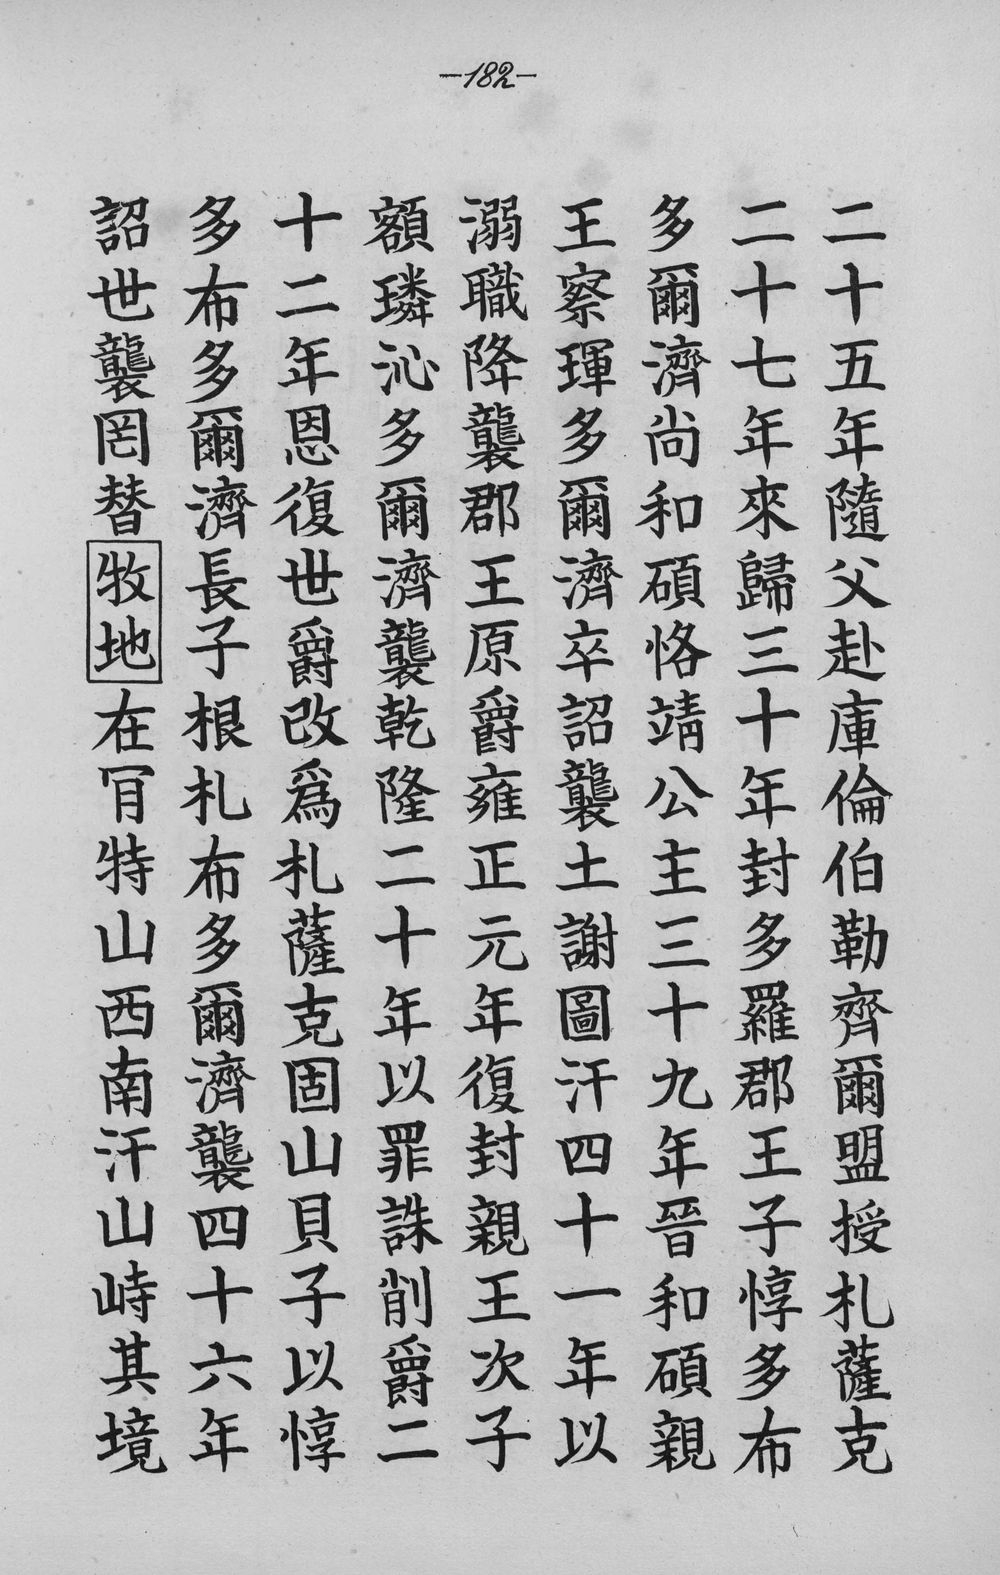 —182—
二十五年隨父赴庫倫伯勒齊爾盟授札薩克
二十七年來歸三十年封多羅郡王子惇多布
多爾濟尚和碩恪靖公主三十九年晉和碩親
王察琿多爾濟卒詔襲土謝圖汗四十一年以
溺職降襲郡王原爵雍正元年復封親王次子
額璘沁多爾濟襲乾隆二十年以罪誅削爵二
十二年恩復世爵改爲札薩克固山貝子以惇
多布多爾濟長子根札布多爾濟襲四十六年
詔世襲罔替牧地在肎特山西南汗山峙其境